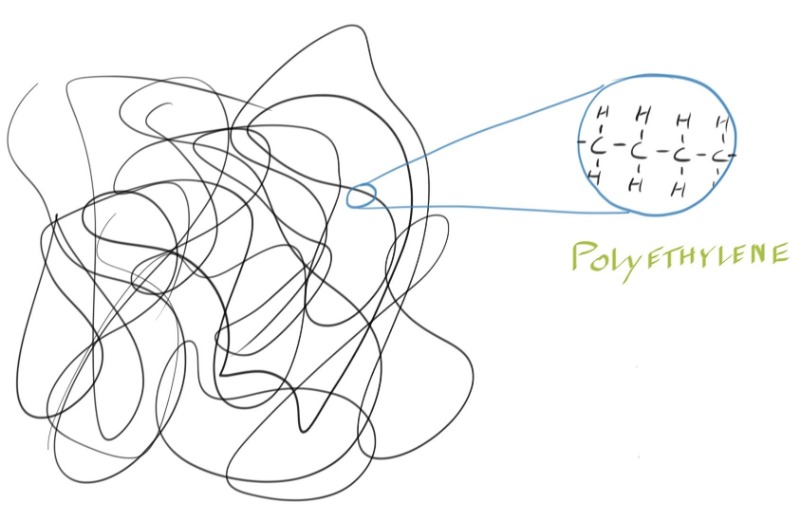 H H H H
-C-C-C-C-
H H H
POLYETHYLENE